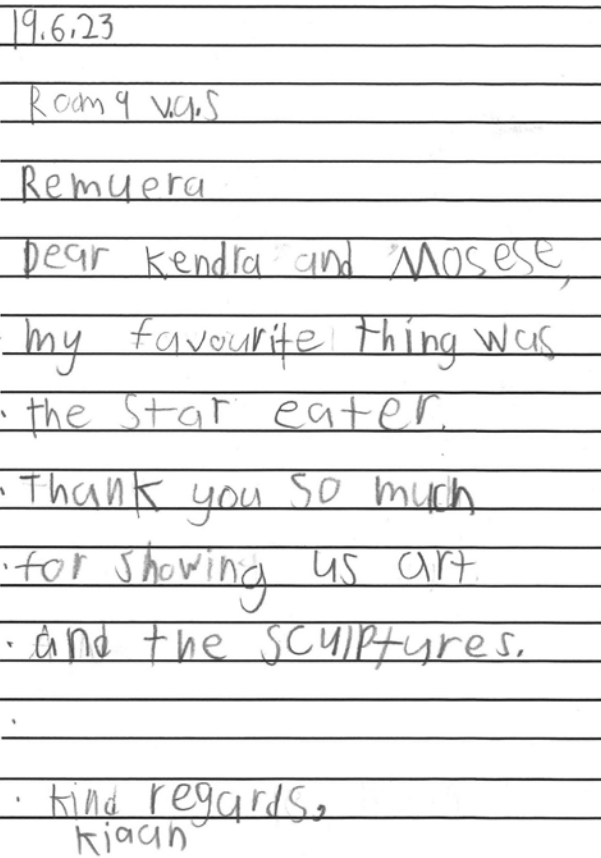 19.6.23
Room 9 v.a.s
Remuera
Dear Kendra and Mosese,
my favourite thing was
the Star eater.
Thank you so much
for showing us art
and the sculptures.
kind regards,
Kiaan